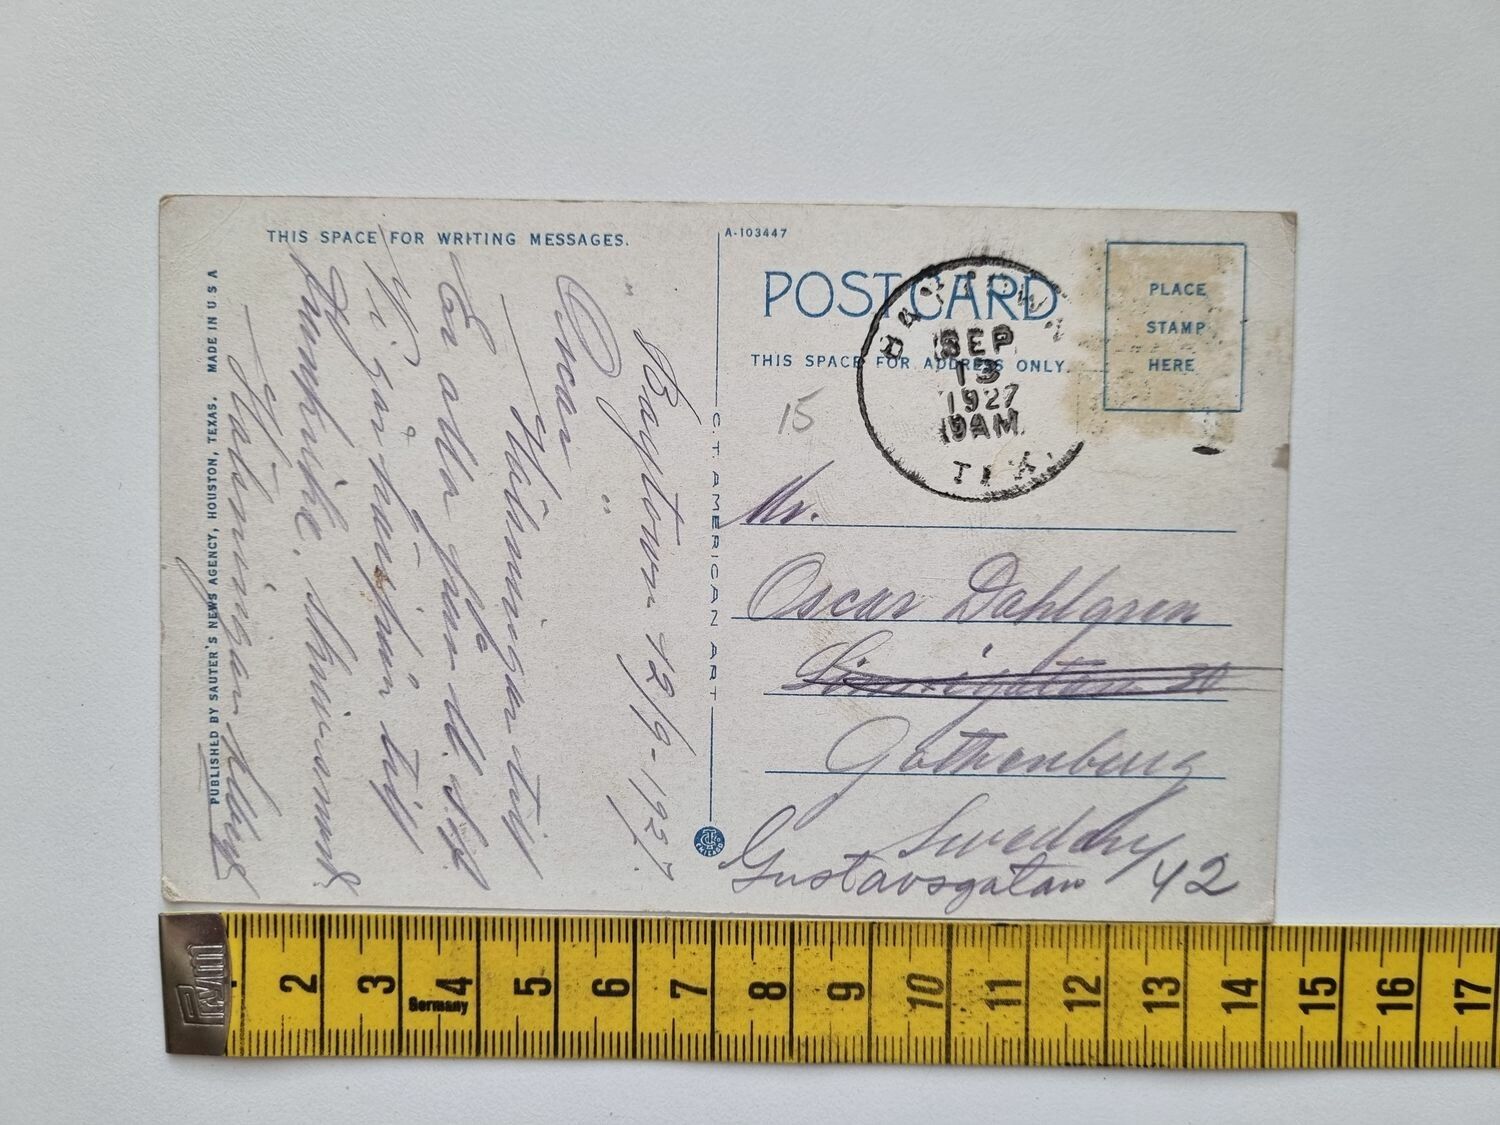 THIS SPACE FOR WRITING MESSAGES.
Baytown 12/9-1927.
"Oscar"
Hälsningar till
Er alla från
Vi går härifrån till
Hälsningar
PUBLISHED BY SAUTER'S NEWS AGENCY, HOUSTON, TEXAS. MADE IN U S A
C. T. AMERICAN ART
CHICAGO
A-103447
POSTCARD
THIS SPACE FOR ADDRESS ONLY.
PLACE
STAMP
HERE
SEP
13
1927
9AM
TEX.
15
Mr.
Oscar Dahlgren
Gothenburg
Sweden
Gustavsgatan 42
Prym
2 3 4 5 6 7 8 9 10 11 12 13 14 15 16 17
Germany